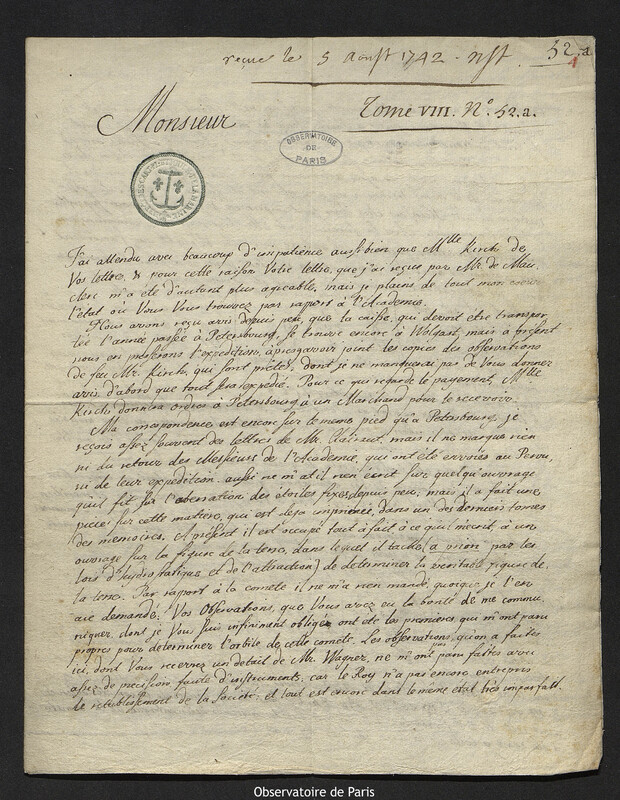 reçue le 5 Aoust 1742. n. st.
52.a
1
Tome VIII. N.º 52.a.
Monsieur
OBSERVATOIRE DE PARIS
J'ai attendu avec beaucoup d'impatience aussi bien que Mlle Kirch de
Vos lettres, & pour cette raison Votre lettre, que j'ai reçue par Mr. de Mau
clerc m'a été d'autant plus agréable, mais je plains de tout mon coeur
l'état où Vous Vous trouvez par raport à l'Academie.
Nous avons reçu avis depuis peu, que la caisse, qui devoit etre transpor
tée l'année passée à Petersbourg, se trouve encore à Wolgast, mais à present
nous en pressons l'expedition, après y avoir joint les copies des observations
de feu Mr. Kirch, qui sont pretes, dont je ne manquerai pas de Vous donner
avis d'abord que tout sera expedié. Pour ce qui regarde le payement, Mlle
Kirch donnera ordre à Petersbourg à un Marchand pour le recevoir.
Ma correspondence est encor sur le meme pied qu'a Petersbourg, je
reçois assez souvent des lettres de Mr. Clairaut, mais il ne marque rien
ni du retour des Messieurs de l'Academie, qui ont eté envoiés au Perou,
ni de leur expedition. aussi ne m'at il rien écrit sur quelqu'ouvrage
qu'il fit sur l'aberration des étoiles fixes depuis peu, mais il a fait une
piece sur cette matiere, qui est deja imprimée dans un des derniers tomes
des memoires. A présent il est occupé tout à fait à ce qu'il m'ecrit, à un
ouvrage sur la figure de la terre, dans lequel il tache (a priori par les
loix d'hydrostatique et de l'attraction) de determiner la veritable figure de
la terre. Par rapport à la comete il ne m'a rien mandé, quoique je l'en
aie demandé. Vos Observations, que Vous avez eu la bonté de me commu
niquer, dont je Vous suis infiniment obligé, ont eté les premieres, qui m'ont paru
propres pour determiner l'orbite de cette comete. Les observations, qu'on a faites
ici, dont Vous recevrez un detail de Mr. Wagner, ne m'ont paru faites avec
assez de precision faute d'instruments: car le Roy n'a pas encore entrepris
le retablissement de la Societé, et tout est encore dans le même etat très imparfait.
Observatoire de Paris